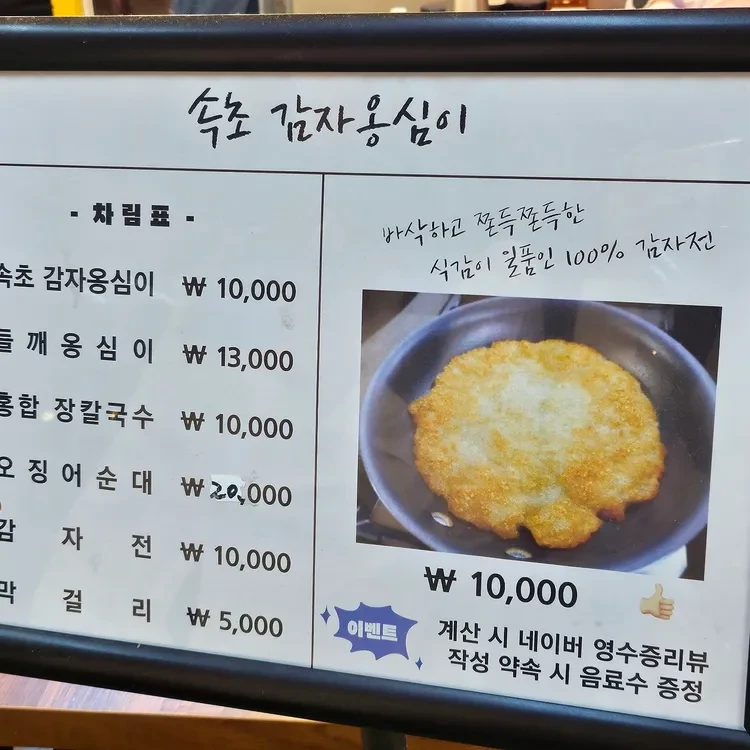 속초 감자옹심이
- 차림표 -
속초 감자옹심이 ₩ 10,000
들깨옹심이 ₩ 13,000
홍합 장칼국수 ₩ 10,000
오징어순대 ₩ 20,000
감자전 ₩ 10,000
막걸리 ₩ 5,000
바삭하고 쫀득쫀득한
식감이 일품인 100% 감자전
₩ 10,000
이벤트
계산 시 네이버 영수증리뷰
작성 약속 시 음료수 증정